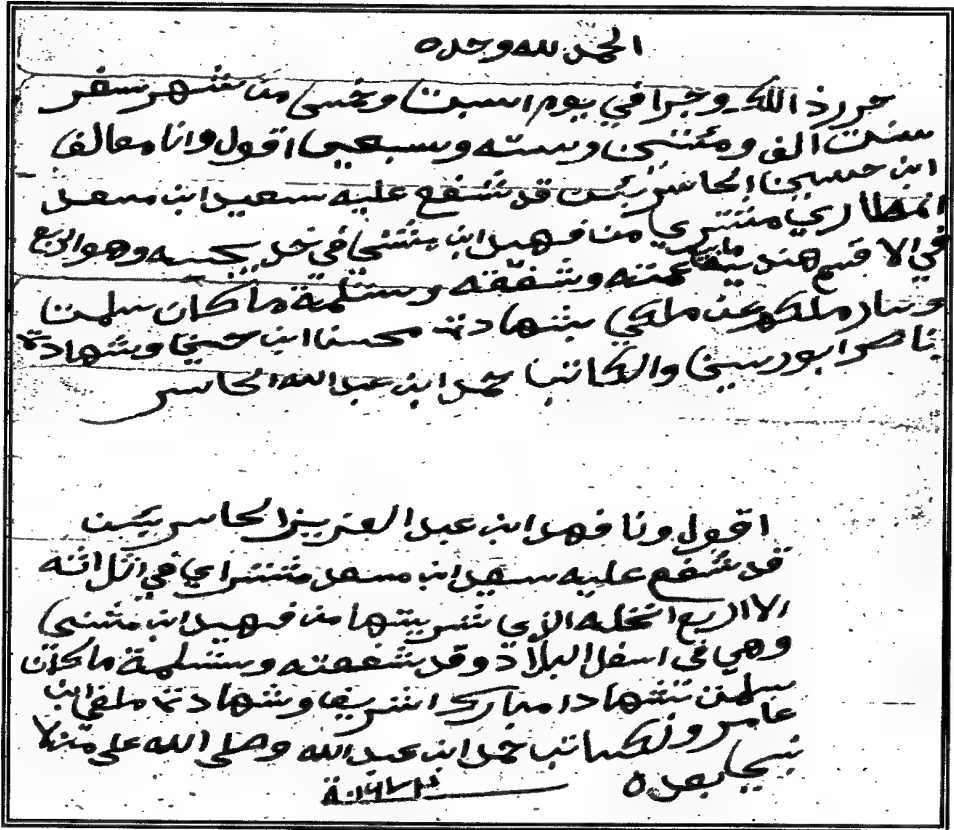 الحمد لله وحده
حرر ذاللك وجرا في يوم السبت وخمسى من شهر سفر
سنت الف ومئتين وسته وسبعين اقول وانا معالف
ابن حسين الجاسر بئن قد شفع عليه سعيد ابن مسعد
المطاري مشتري من فهيد ابن مثنى في نخل يحسبه وهو الربع
في الا قسم هنديه عمته وشفقته وستلمة ما كان سلمت
وسار ملكه عن ملكي بشهادة محسن ابن حسين وشهادة
ناصر ابورسين والكاتب حمد ابن عبد الله الجاسر
اقول ونا فهد ابن عبد العزيز الجاسر بئن
قد شفع عليه سعيد ابن مسعد مشتراي في اثل اثله
الا الربع انخله الذي شريتها من فهيد ابن مثنى
وهي في اسفل البلاد وقد شفعته وستلمة ما كان
سلمت شهادا مبارك اشريف وشهادة ملفي ابن
عامر ولكاتب حمد ابن عبد الله وصلى الله على من لا
نبي بعده